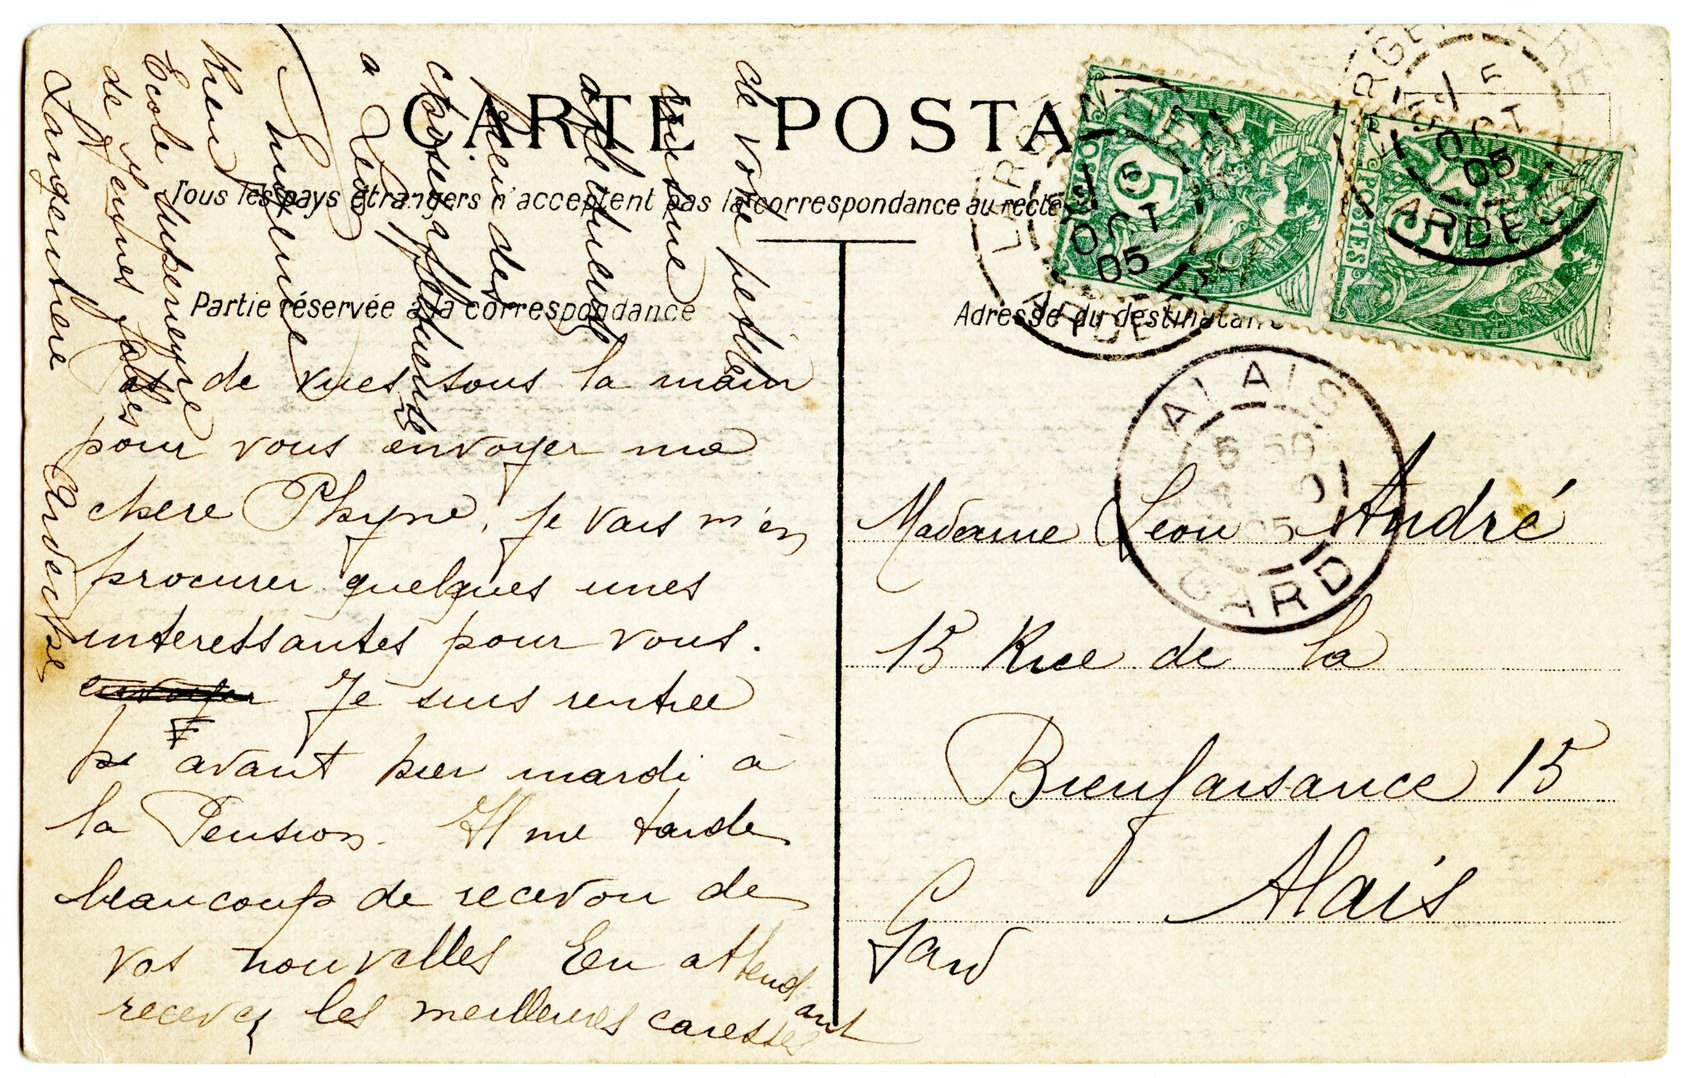 CARTE POSTA
Tous les pays étrangers n'acceptent pas la correspondance au recto
Partie réservée à la correspondance
Adresse du destinatair
de vues sous la main
pour vous envoyer ma
chere Phyne. Je vais m'en
procurer quelques unes
interessantes pour vous.
Je suis rentree
avant hier mardi à
la Pension. Il me tarde
beaucoup de recevoir de
vos nouvelles En attendant
recevez les meilleures caresses
de votre petite
cousine
affectueuse
Merci des
a Léo
Eugenie
Ecole superieure
de jeunes filles
Largentiere Ardeche
Madame Leon André
15 Rue de la
Bienfaisance 15
Alais
Gard
5
OCT
05
ARDE
OCT
05
ARDEC
POSTES
ALAIS
05
GARD